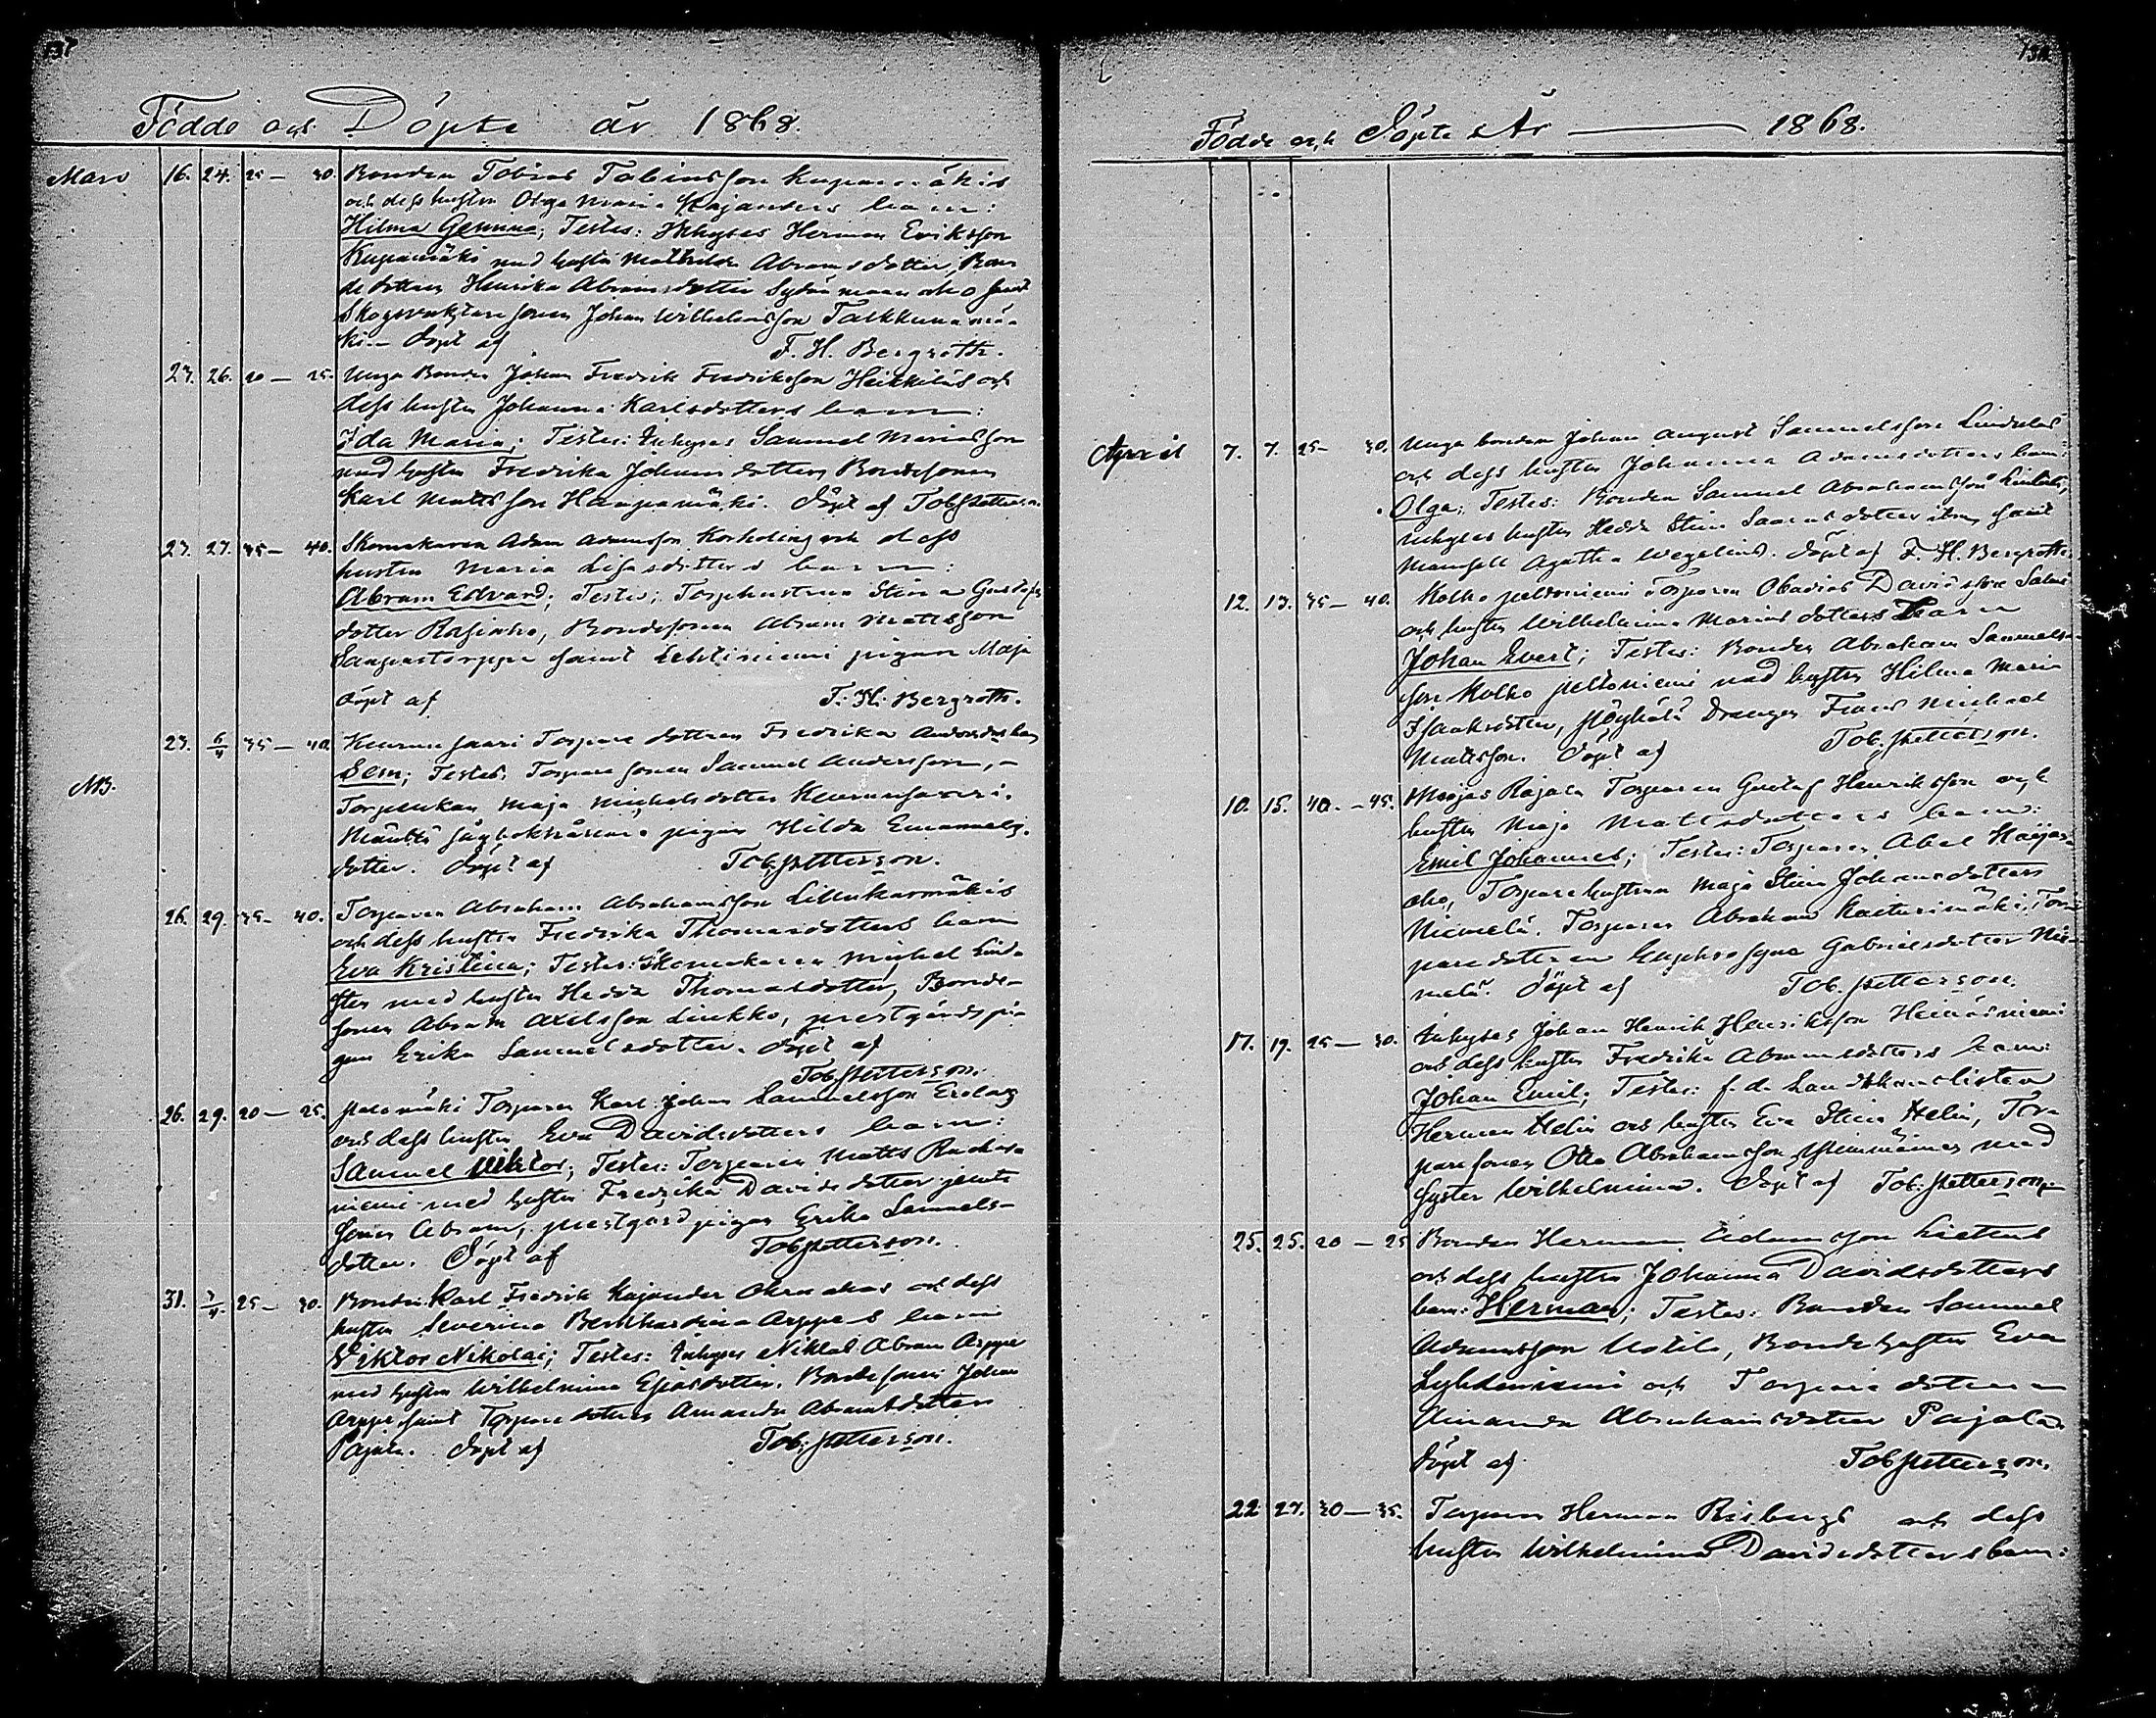 137
Födde och Döpte år 1868.
Mars 16. 24. 25 — 30. Bonden Tobias Tobiasson Kuparmäkis
och dess hustru Olga Maria Kajanders barn:
Hilma Gemima; Testes: Inhyses Herman Eriksson
med hustru Mathilda Abramsdotter, Bon
dedottern Henrika Abramsdotter samt
Skogsvaktaresonen Johan Wilhelmsson Talkkunamä-
ki. — Döpt af F. H. Bergroth.
23. 26. 20 — 25. Unga Bonden Johan Fredrik Fredriksson Heikkiläs och
dess hustru Johanna Karlsdotters barn:
Ida Maria; Testes: Inhyses Samuel Mariasson
med hustru Fredrika Johansdotter, Bondesonen
Karl Mattsson Haapamäki. Döpt af Tob. Petterson.
23. 27. 35 — 40. Skomakaren Adam Adamsson Korholins och dess
hustru Maria Lisasdotters barn:
Abram Edvard; Testes: Torphustrun Stina Gustafs
dotter, Bondesonen Abram Mattsson
samt Lehtiniemi pigan Maja
Döpt af F. H. Bergroth.
23. 5/4 35 — 40. Keurunsaari Torpare dottren Fredrika barn
Sem; Testes: Torpare sonen Samuel Andersson, —
Torpenkan Maja Michelsdotter Keurunsaari.
NB.
pigan Hilda Emanuels-
dotter. Döpt af Tob. Petterson.
26. 29. 35 — 40. Torparen Abraham Abrahamsson Lillukarmäkis
och dess hustru Fredrika Thomasdotters barn
Eva Kristina; Testes: Skomakaren Michel Lind-
med hustru Hedda Thomasdotter, Bonde-
sonen Abram Axelsson Liukko, prestgårdspi-
gan Erika Samuelsdotter. Döpt af
Tob. Petterson.
26. 29. 20 — 25. Torparen Karl Johan Samuelsson
och dess hustru Eva Davidsdotters barn:
Samuel Viktor; Testes: Torparen Matts
niemi med hustru Fredrika Davidsdotter jemte
sonen Abram, prestgårdspigan Erika Samuels-
dotter. Döpt af Tob. Petterson.
31. 3/4 25 — 30. Bonden Karl Fredrik Kajander och dess
hustru Severina Bernhardina Arppes barn
Viktor Nikolai; Testes: Inhyses Niklas Abram Arppe
med hustru Wilhelmina Esiasdotter, Bondesonen Johan
Arppe samt Torpare dottren Amanda Abramsdotter
Pajala. Döpt af Tob. Petterson.
138
Födde och Döpte År — 1868.
April 7. 7. 25 — 30. Unga bonden Johan August Samuelsson
och dess hustru Johanna Adamsdotters barn:
Olga; Testes: Bonden Samuel Abrahamsson
inhyses hustru Hedda Stina samt
Mamsell Agatha Wegelius. Döpt af F. H. Bergroth.
12. 13. 35 — 40. Kolho peltoniemi Torparen Obadias Davidsson
och hustru Wilhelmina Mariasdotters barn
Johan Evert; Testes: Bonden Abraham Samuels-
son Kolho peltoniemi med hustru Hilma Maria
Isaksdotter, Drengen Frans Michael
Mattsson. Döpt af Tob. Petterson.
10. 15. 40. — 45. Rajala Torparen Gustaf Henriksson och
hustru Maja Mattsdotters barn:
Emil Johannes; Testes: Torparen Abel Haijas-
aho, Torparehustrun Maja Stina Johansdotter
Niemelä, Torparen Abraham Tor-
paredottren Euphrosyna Gabrielsdotter Nie-
melä. Döpt af Tob. Petterson.
17. 19. 25 — 30. Inhyses Johan Henrik Henriksson Heinäsniemi
och dess hustru Fredrika Abramsdotters barn:
Johan Emil; Testes: f.d. Landtkanslisten
Herman Helin och hustru Eva Stina Helin, Tor-
paresonen Otto Abrahamsson med
syster Wilhelmina. Döpt af Tob. Petterson.
25. 25. 20 — 25 Bonden Herman Adamsson
och dess hustru Johanna Davidsdotters
barn: Herman; Testes: Bonden Samuel
Adamsson Uotila, Bondehustru Eva
och Torparedottren
Amanda Abrahamsdotter Pajala
Döpt af Tob. Petterson.
22 27. 30 — 35. Torparen Herman Risbergs och dess
hustru Wilhelmina Davidsdotters barn: